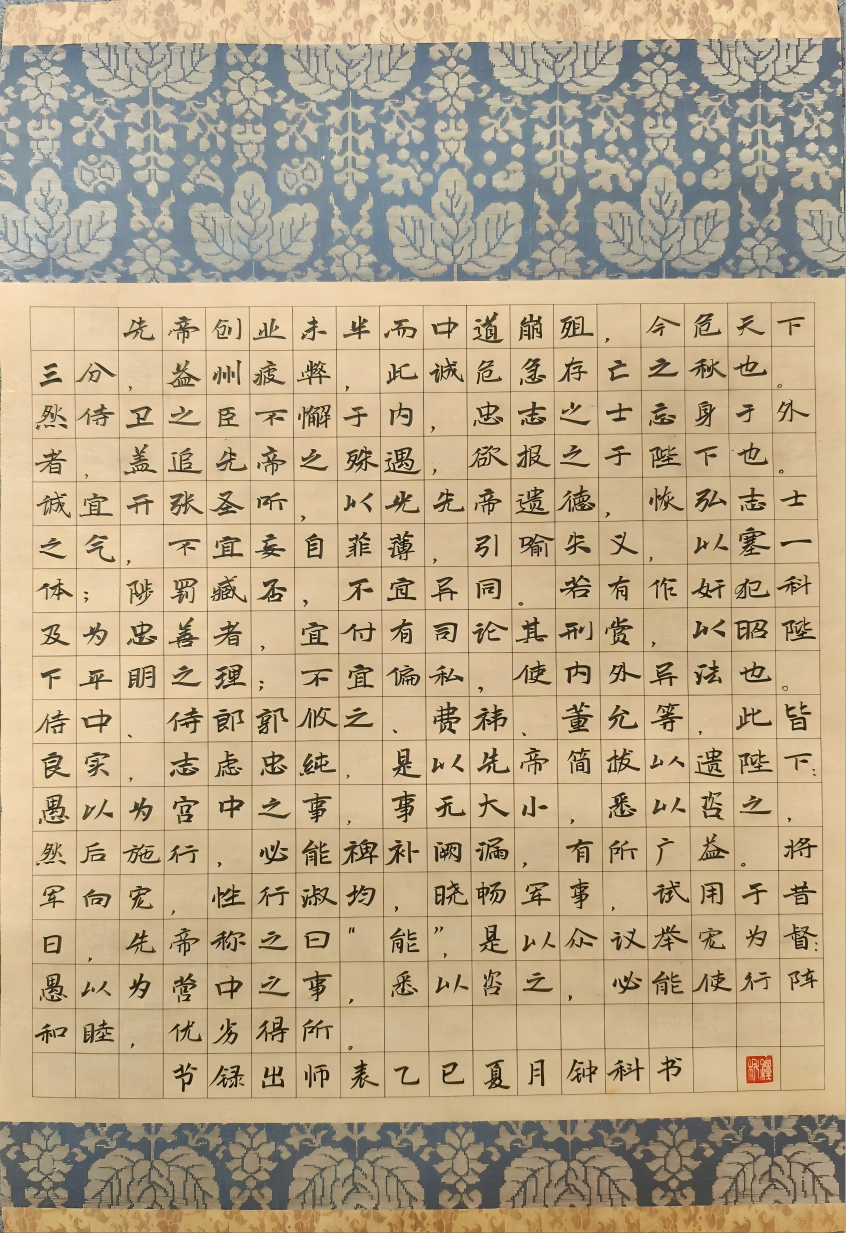 先帝创业未半而中道崩殂，今危天下
三分，益州疲弊，此诚危急存亡之秋也。
然侍卫之臣不懈于内，忠志之士忘身于外
者，盖追先帝之殊遇，欲报之于陛下也。
诚宜开张圣听，以光先帝遗德，恢弘志士
之气，不宜妄自菲薄，引喻失义，以塞一
体；陟罚臧否，不宜异同。若有作奸犯科
及为忠善者，宜付有司论其刑赏，以昭陛
下平明之理；不宜偏私，使内外异法也。
侍中、侍郎郭攸之、费祎、董允等，此皆
良实，志虑忠純，是以先帝简拔以遗陛下：
愚以为宫中之事，事无大小，悉以咨之，
然后施行，必能裨补阙漏，有所广益。将
军向宠，性行淑均，晓畅军事，试用于昔
日，先帝称之曰“能”，是以众议举宠为督：
愚以为营中之事，悉以咨之，必能使行阵
和睦，优劣得所。
节録出师表乙巳夏月钟科书